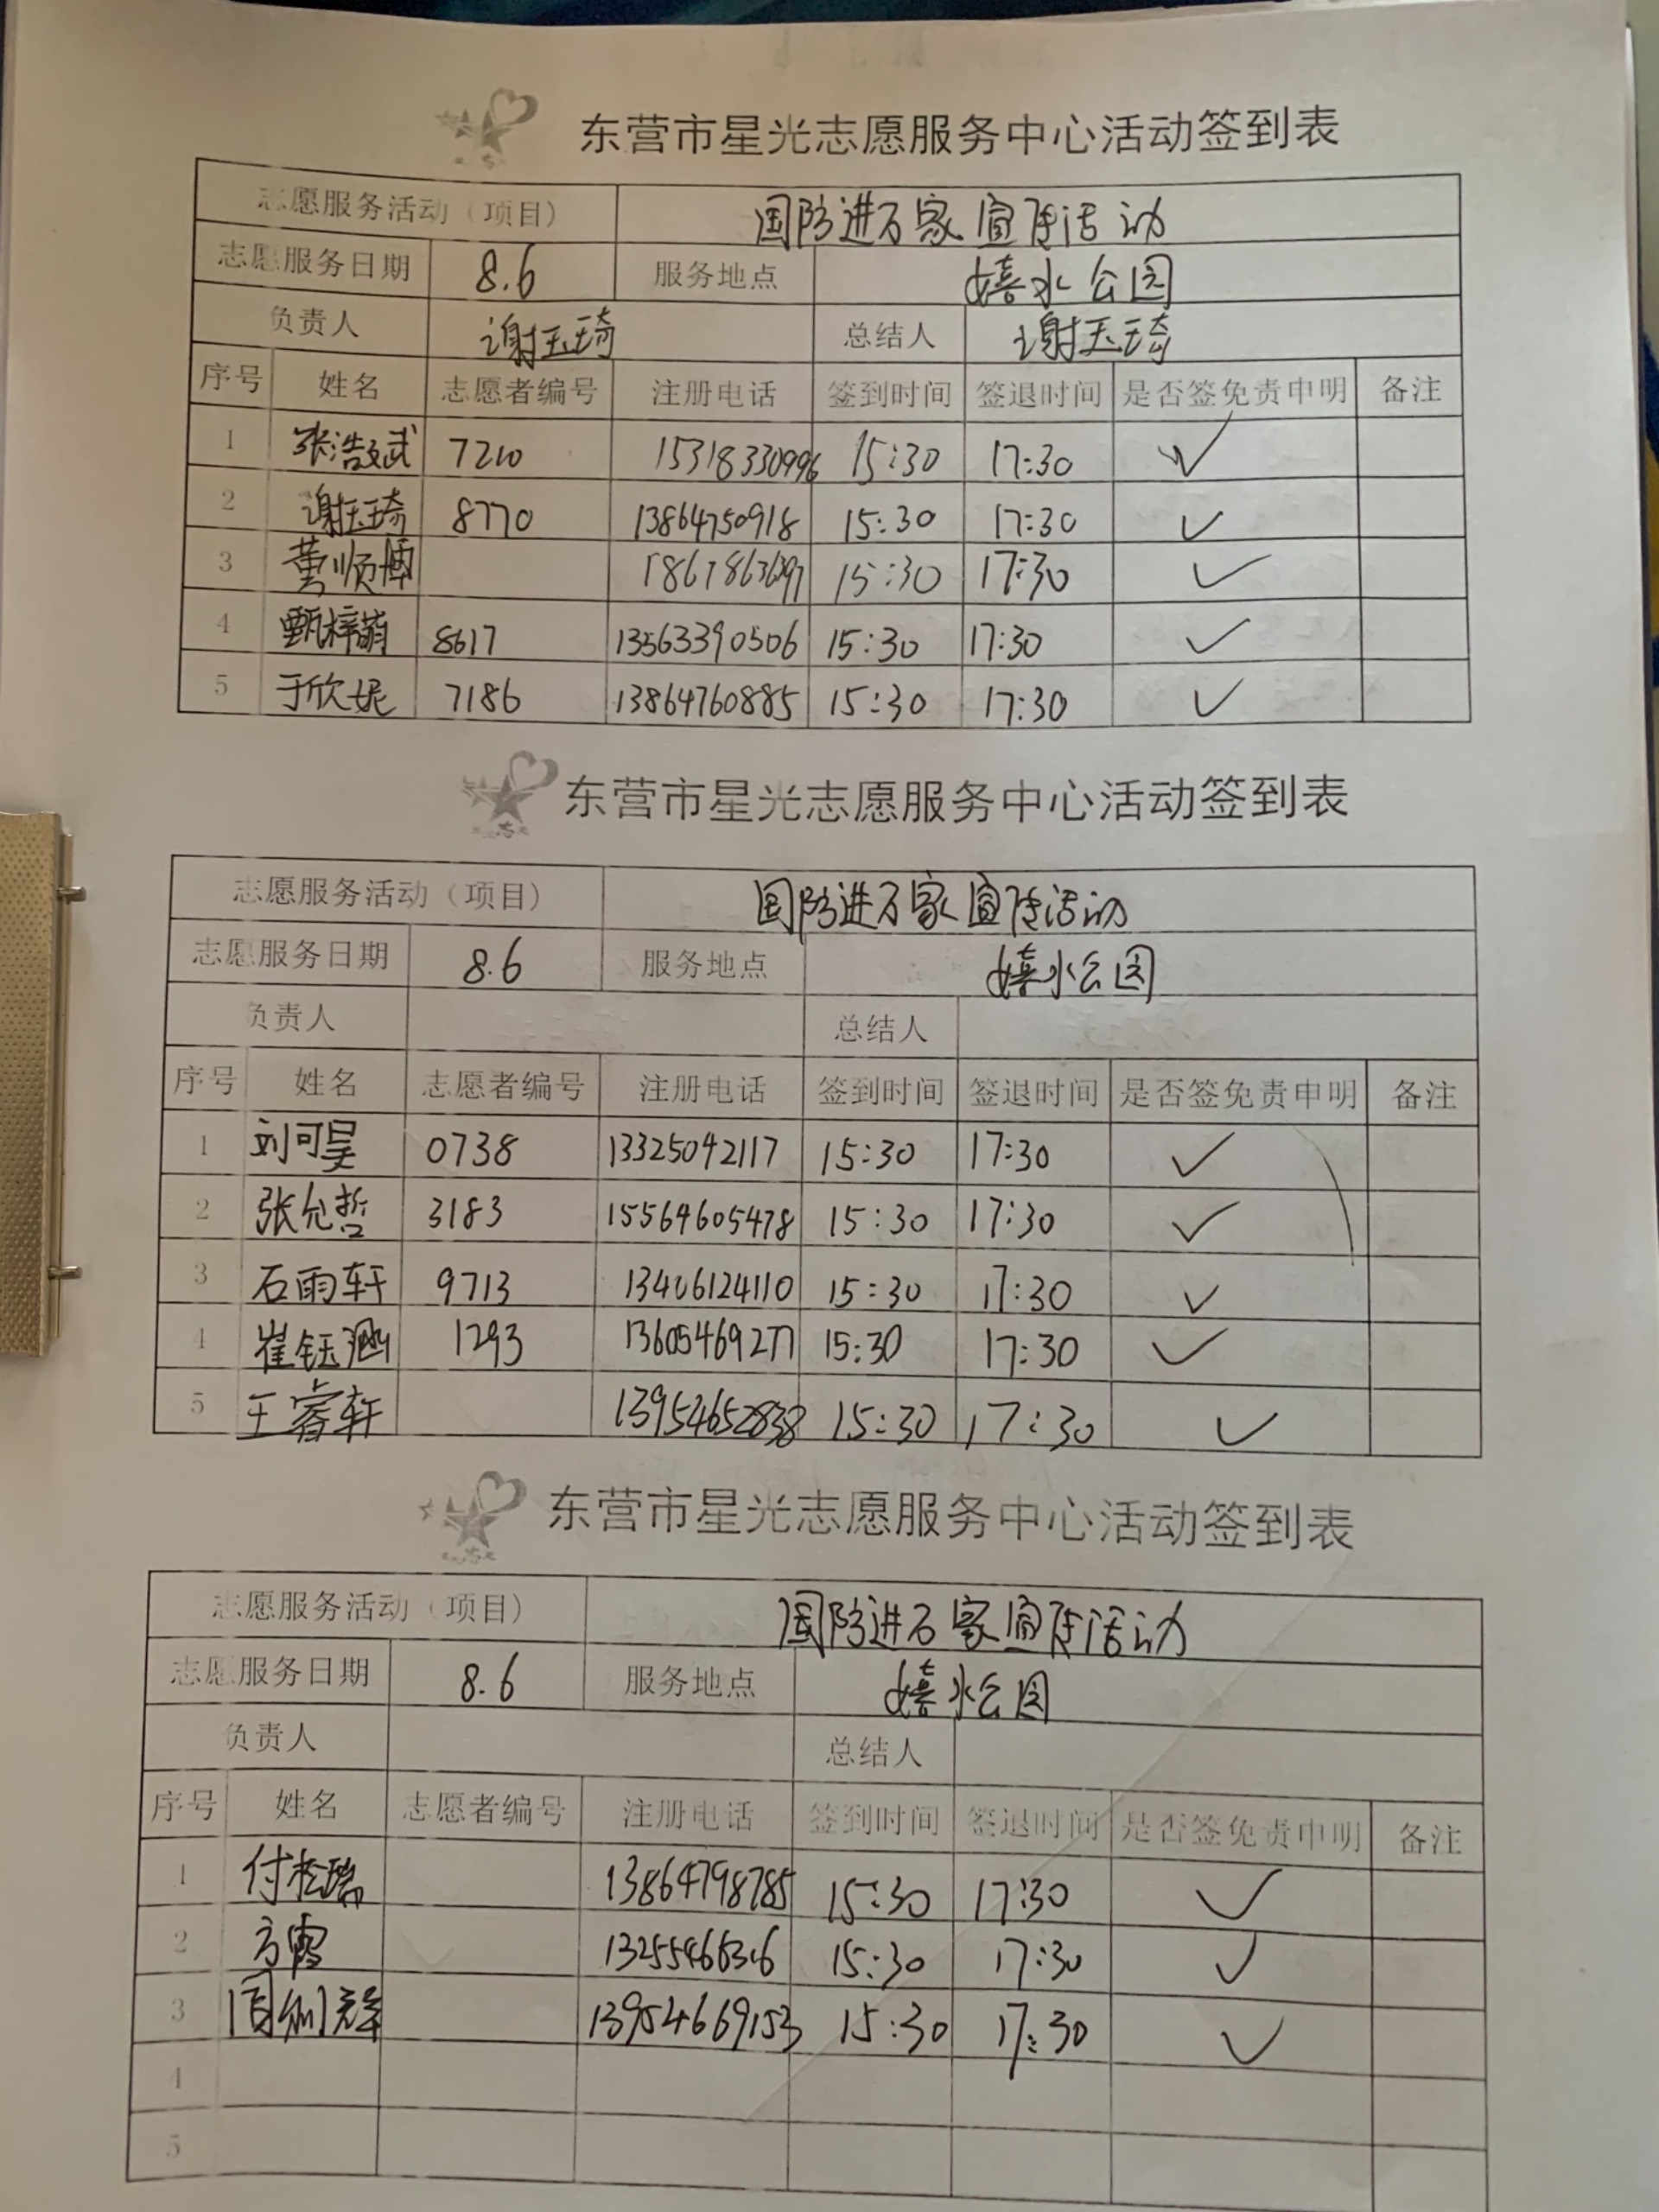 东营市星光志愿服务中心活动签到表
志愿服务活动（项目） 国防进万家宣传活动
志愿服务日期 8.6 服务地点 嬉水公园
负责人 谢玉琦 总结人 谢玉琦
序号 姓名 志愿者编号 注册电话 签到时间 签退时间 是否签免责申明 备注
1 张浩斌 7210 15318330996 15:30 17:30 ✓
2 谢玉琦 8770 13864750918 15:30 17:30 ✓
3 黄顺博 15:30 17:30 ✓
4 甄梓萌 8617 13563390506 15:30 17:30 ✓
5 于欣妮 7186 13864760885 15:30 17:30 ✓
东营市星光志愿服务中心活动签到表
志愿服务活动（项目） 国防进万家宣传活动
志愿服务日期 8.6 服务地点 嬉水公园
负责人 总结人
序号 姓名 志愿者编号 注册电话 签到时间 签退时间 是否签免责申明 备注
1 刘可昊 0738 13325042117 15:30 17:30 ✓
2 张允哲 3183 15564605478 15:30 17:30 ✓
3 石雨轩 9713 13406124110 15:30 17:30 ✓
4 崔钰涵 1293 13605469277 15:30 17:30 ✓
5 王睿轩 13954652838 15:30 17:30 ✓
东营市星光志愿服务中心活动签到表
志愿服务活动（项目） 国防进万家宣传活动
志愿服务日期 8.6 服务地点 嬉水公园
负责人 总结人
序号 姓名 志愿者编号 注册电话 签到时间 签退时间 是否签免责申明 备注
1 付松瑞 13864798785 15:30 17:30 ✓
2 方霄 15:30 17:30 ✓
3 13954669153 15:30 17:30 ✓
4
5